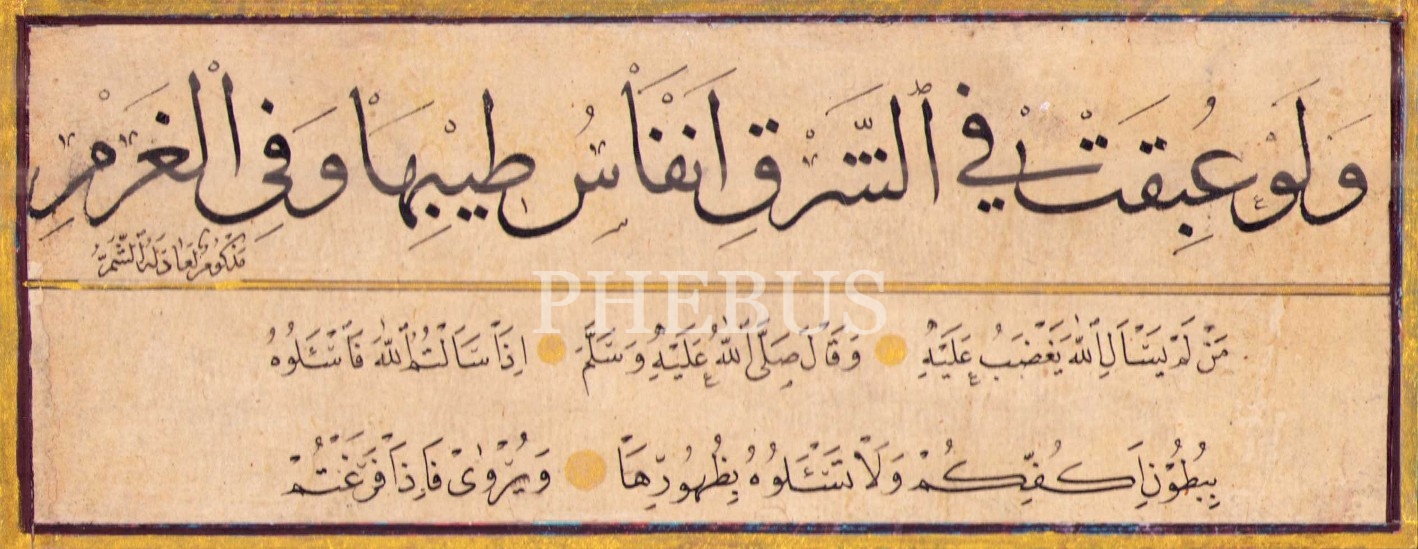 وَلَوْ عُبِقَتْ فِي ٱلشَّرْقِ اَنْفَاسُ طِيْبِهَا وَفِي
مَذْكُومٌ لَعَادَ لَهُ الشَّمُّ
PHEBUS
مَنْ لَمْ يَسْاَلِ اللّٰهَ يَغْضَبْ عَلَيْهِ وَقَالَ صَلَّى اللّٰهُ عَلَيْهِ وَسَلَّمَ اِذَا سَاَلْتُمُ اللّٰهَ فَاسْئَلُوهُ
بِبُطُوْنِ اَكُفِّكُمْ وَلَا تَسْئَلُوهُ بِظُهُورِهَا وَيُرْوٰى فَاِذَا فَرَغْتُمْ